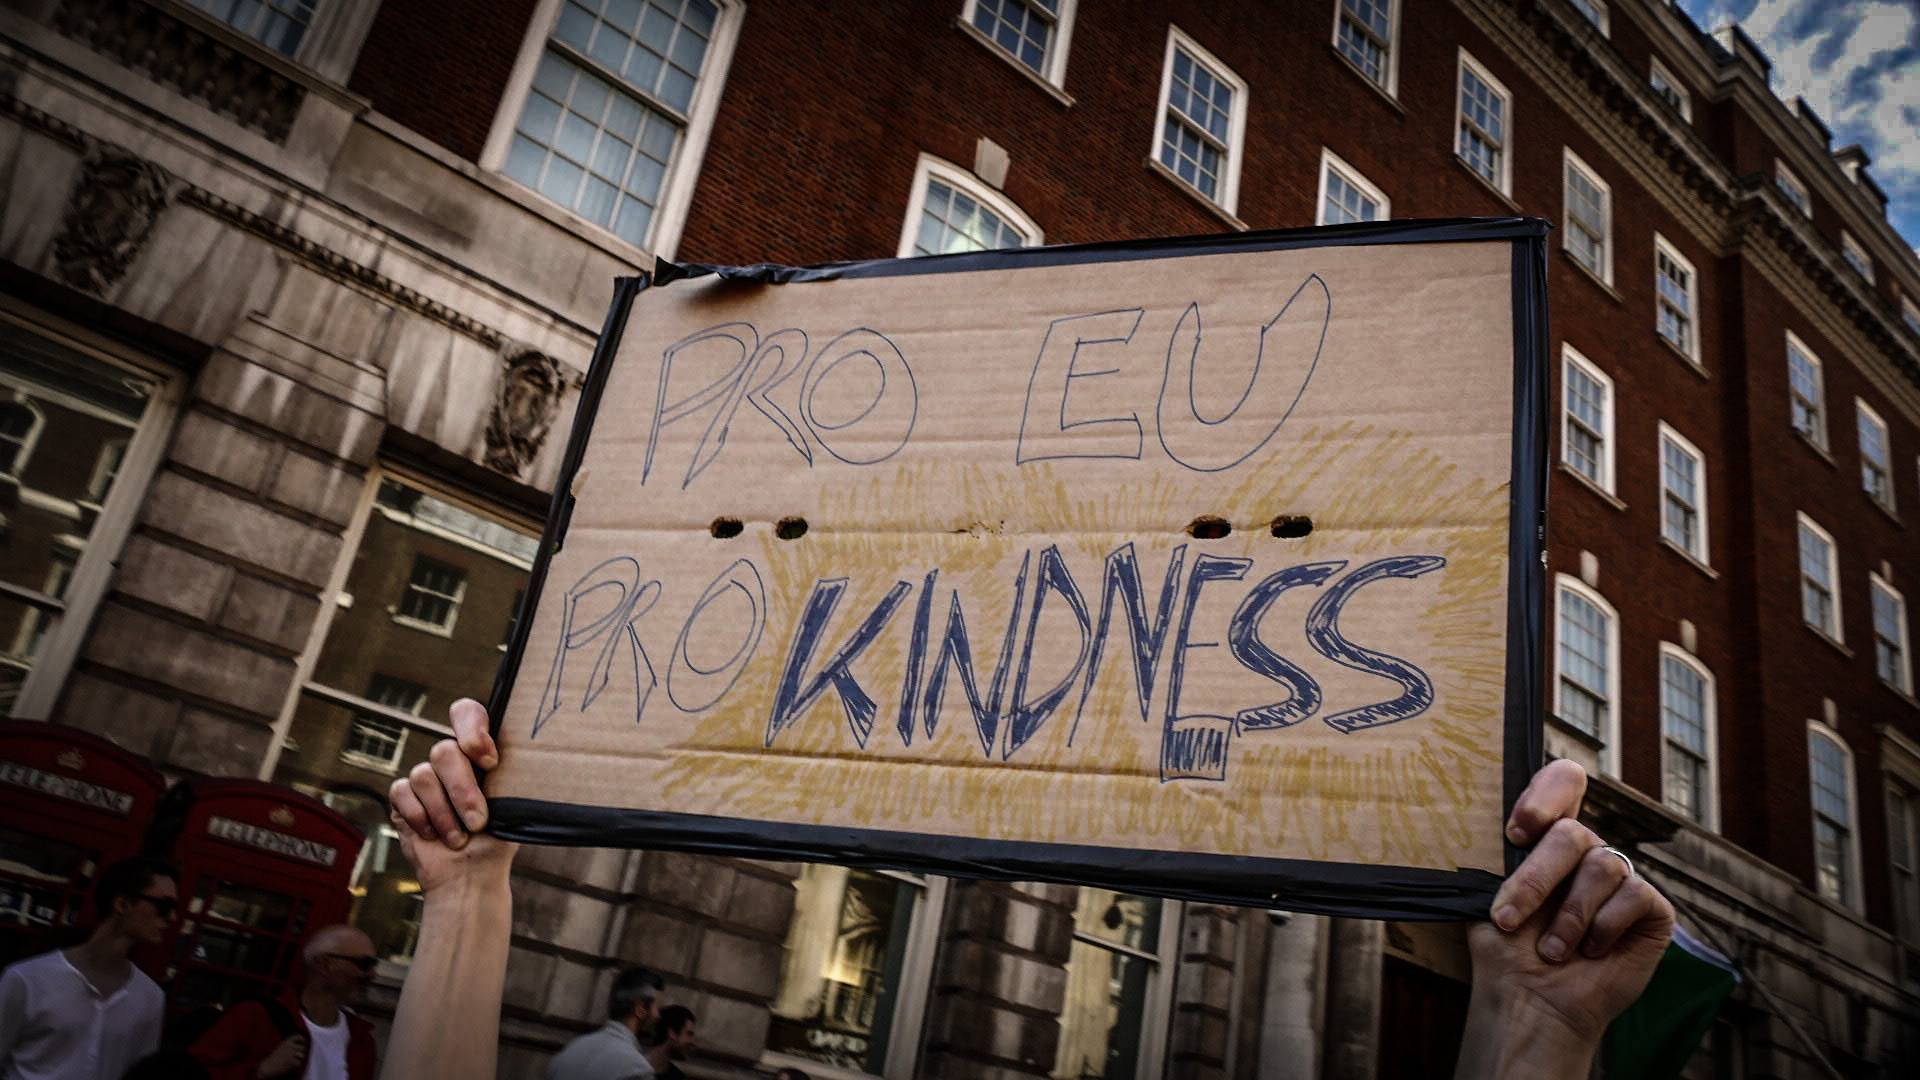 PRO EU
PRO KINDNESS
TELEPHONE
TELEPHONE